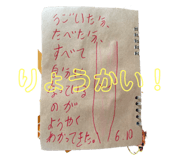 うごいたな。
たべたな。
すべて
りょうかい！
のが
ようやく
わかってきた。
6.10